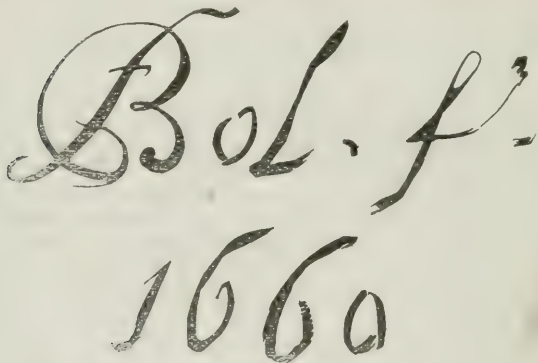 Bol. f.
1660